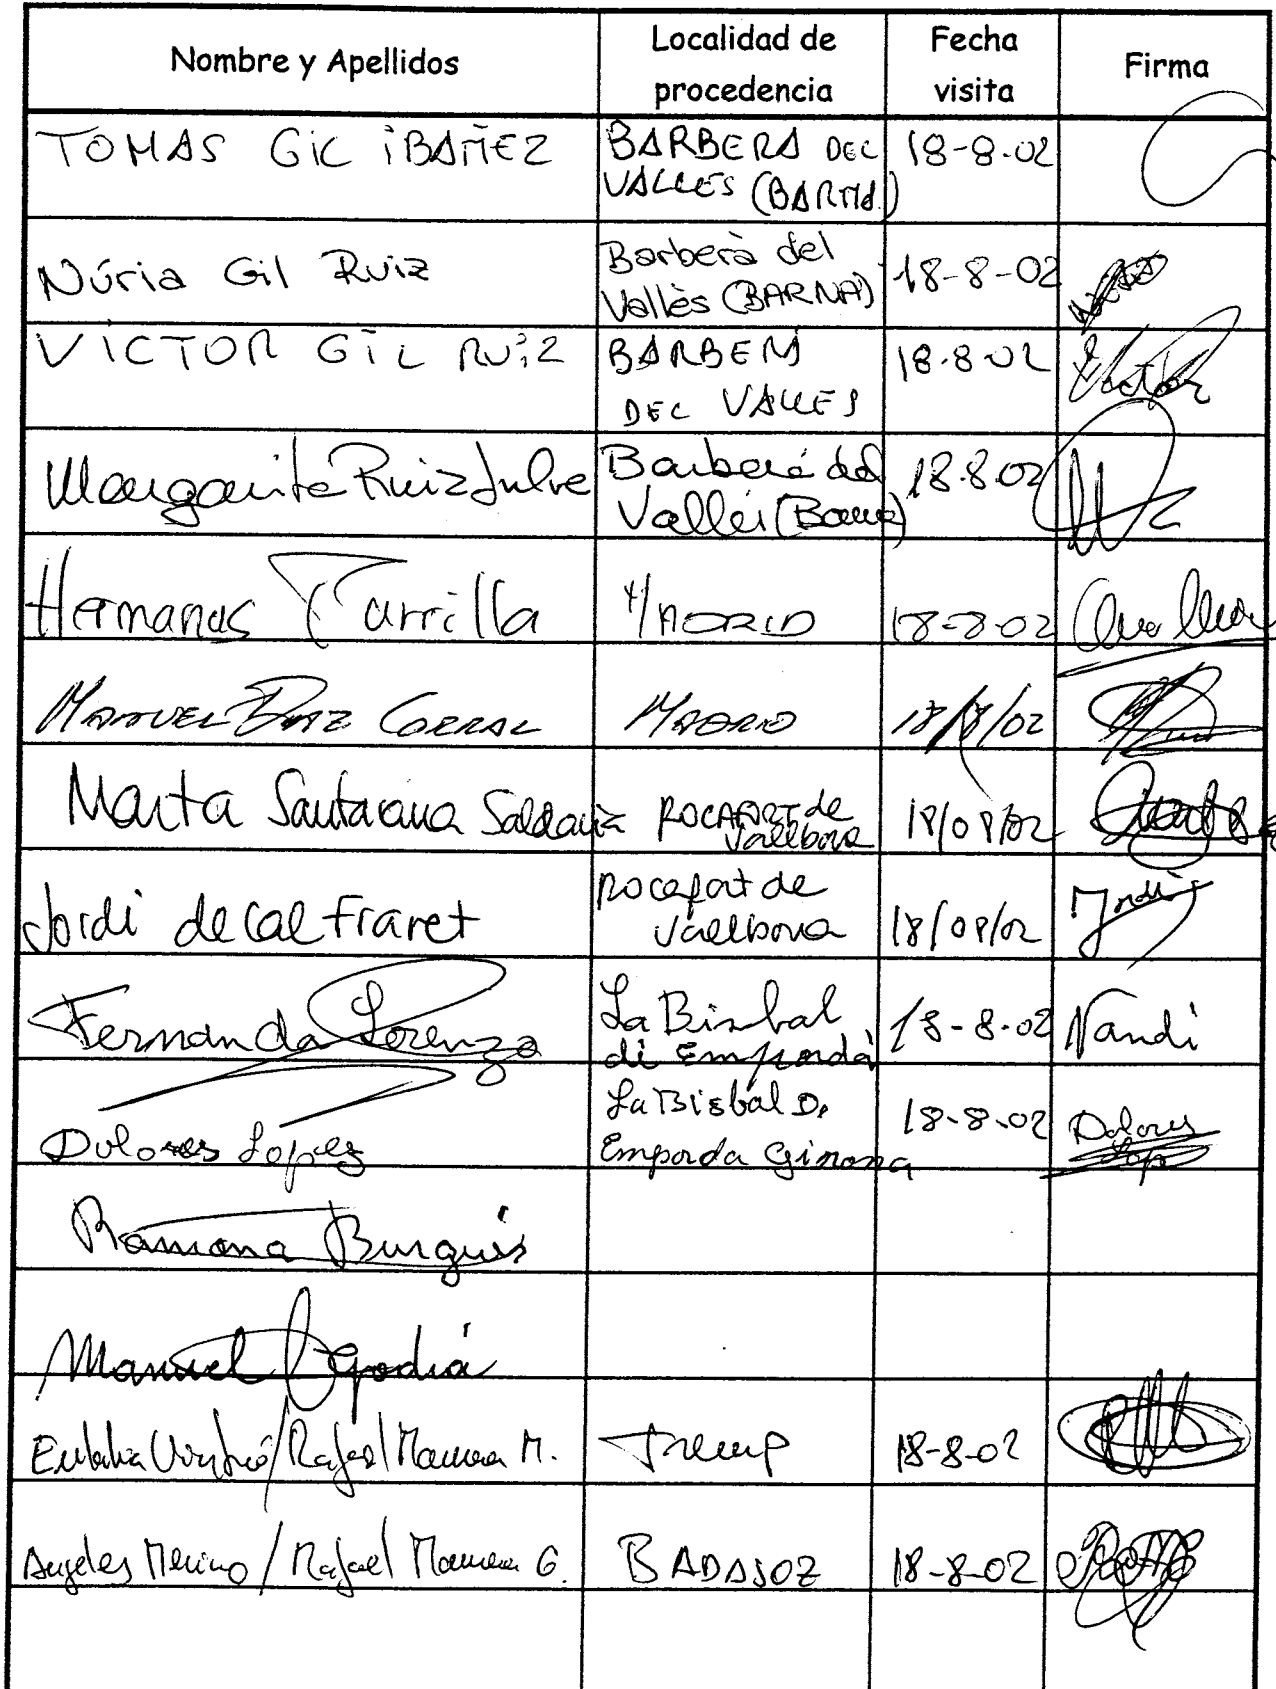 Nombre y Apellidos Localidad de procedencia Fecha visita Firma
TOMAS GIL IBAÑEZ BARBERA DEL VALLES (BARNA.) 18-8-02
Núria Gil Ruiz Barberà del Vallès (BARNA) 18-8-02
VICTOR GIL RUIZ BARBERA DEL VALLES 18.8.02 Victor
Margarita Ruiz Julve Barberá del Vallés (Barna) 18.8.02
Hermanas Parrilla MADRID 18-8-02
MANUEL DIAZ CORRAL MADRID 18/8/02
Marta Santaeana Saldaña ROCAFORT de Vallbona 18/08/02
Jordi de cal Fraret Rocafort de Vallbona 18/08/02 Jordi
Fernanda Lorenzo La Bisbal di Empordà 18-8-02 Nandi
Dolores Lopez La Bisbal D. Emporda Girona 18-8-02 Dolores Lop
Ramona Burgués
Manuel Agodiá
Eulalia / Rafael M. Tremp 18-8-02
Angeles Merino / Rafael G. BADAJOZ 18-8-02